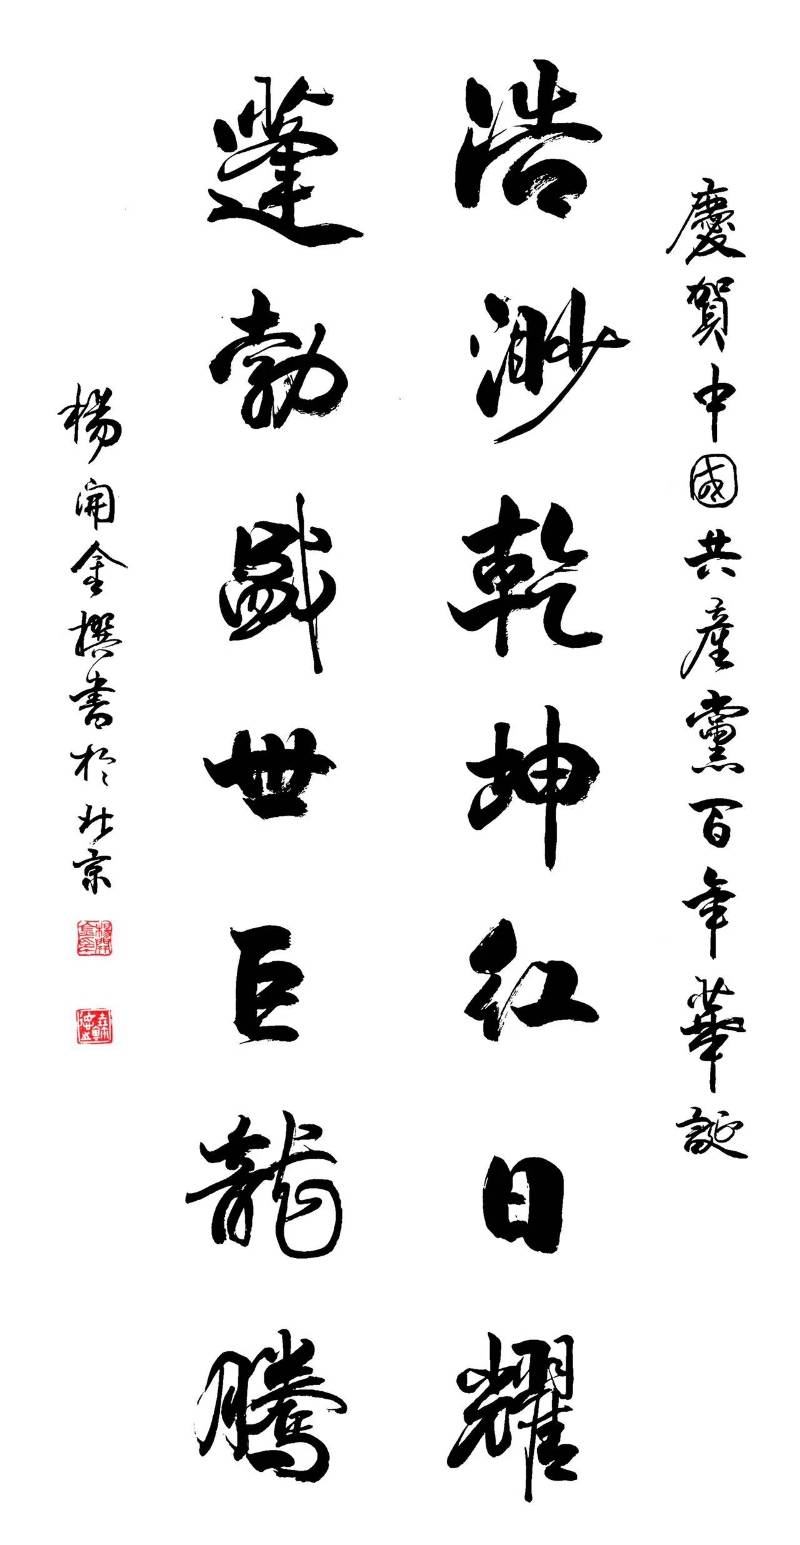 慶賀中國共產黨百年華誕
浩渺乾坤紅日耀
蓬勃盛世巨龍騰
楊開金撰書於北京